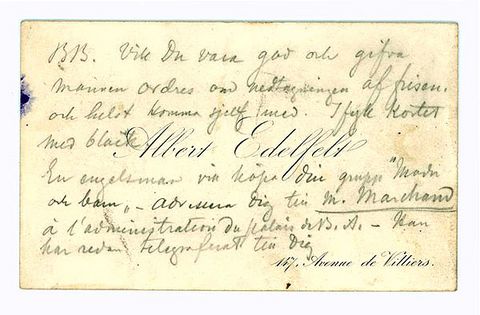 BB. Vill Du vara god och gifva
mannen ordres om nedtagningen af frisen,
och helst komma sjelf med. I fyll kortet
med black.
Albert Edelfelt
En engelsman vill köpa din grupp "Moder
och barn" - adressera Dig till M. Marchand
à l'administration du Palais de B. A. - Han
har redan telegraferat till Dig
147, Avenue de Villiers.